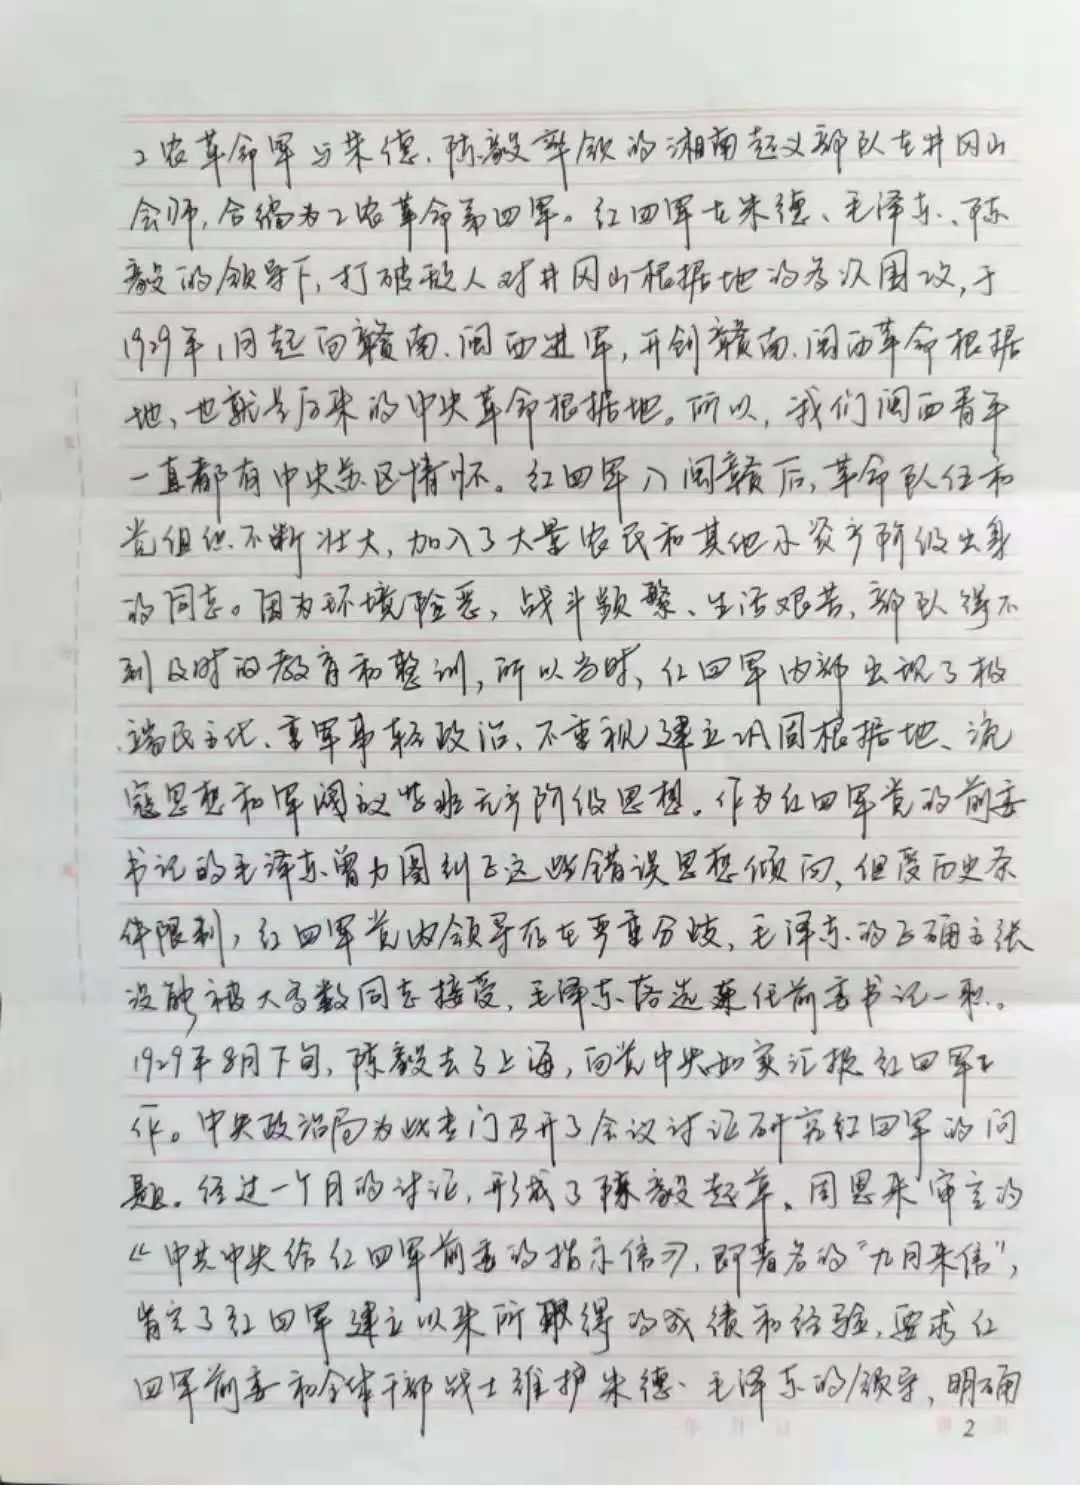 工农革命军与朱德、陈毅率领的湘南起义部队在井冈山
会师，合编为工农革命第四军。红四军在朱德、毛泽东、陈
毅的领导下，打破敌人对井冈山根据地的多次围攻，于
1929年1月起向赣南、闽西进军，开创赣南、闽西革命根据
地，也就是后来的中央革命根据地。所以，我们闽西青年
一直都有中央苏区情怀。红四军入闽赣后，革命队伍和
党组织不断壮大，加入了大量农民和其他小资产阶级出身
的同志。因为环境险恶，战斗频繁、生活艰苦，部队得不
到及时的教育和整训，所以当时，红四军内部出现了极
端民主化、重军事轻政治、不重视建立巩固根据地、流
寇思想和军阀主义等非无产阶级思想。作为红四军党的前委
书记的毛泽东曾力图纠正这些错误思想倾向，但受历史条
件限制，红四军党内领导存在严重分歧，毛泽东的正确主张
没能被大多数同志接受，毛泽东落选兼任前委书记一职。
1929年8月下旬，陈毅去了上海，向党中央如实汇报红四军工
作。中央政治局为此专门召开了会议讨论研究红四军的问
题。经过一个月的讨论，形成了陈毅起草、周恩来审定的
《中共中央给红四军前委的指示信》，即著名的“九月来信”，
肯定了红四军建立以来所取得的成绩和经验，要求红
四军前委和全体干部战士维护朱德、毛泽东的领导，明确
2